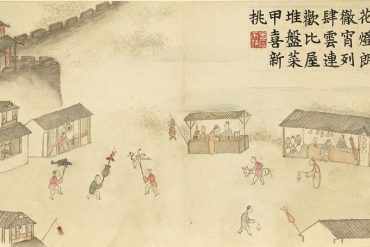 花燈朗
徹宵列
肆雲連
歡比屋
堆盤菜
甲喜新
挑